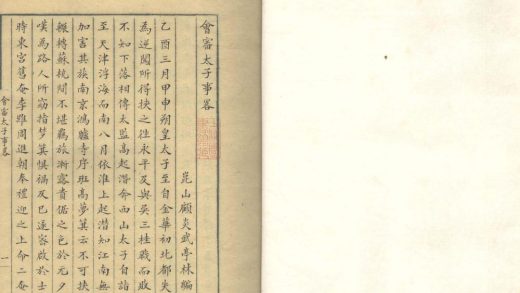 會審太子事畧
崑山顧炎武亭林編
乙酉三月甲申朔皇太子至自金華初北都失
為逆闖所得挾之往永平及與吳三桂戰而敗
不知下落相傳太監高起潛奔西山太子自詣
至天津浮海而南八月依淮上起潛知江南無
加害其族南京鴻臚寺序班高夢箕云不可挾
輾轉蘇杭間不堪羈旅漸露貴倨之色於元夕
嘆為路人所竊指夢箕懼禍及已速密啟於士
時東宮舊奄李雖周進朝奉禮迎之上命二奄
會審太子事畧
一